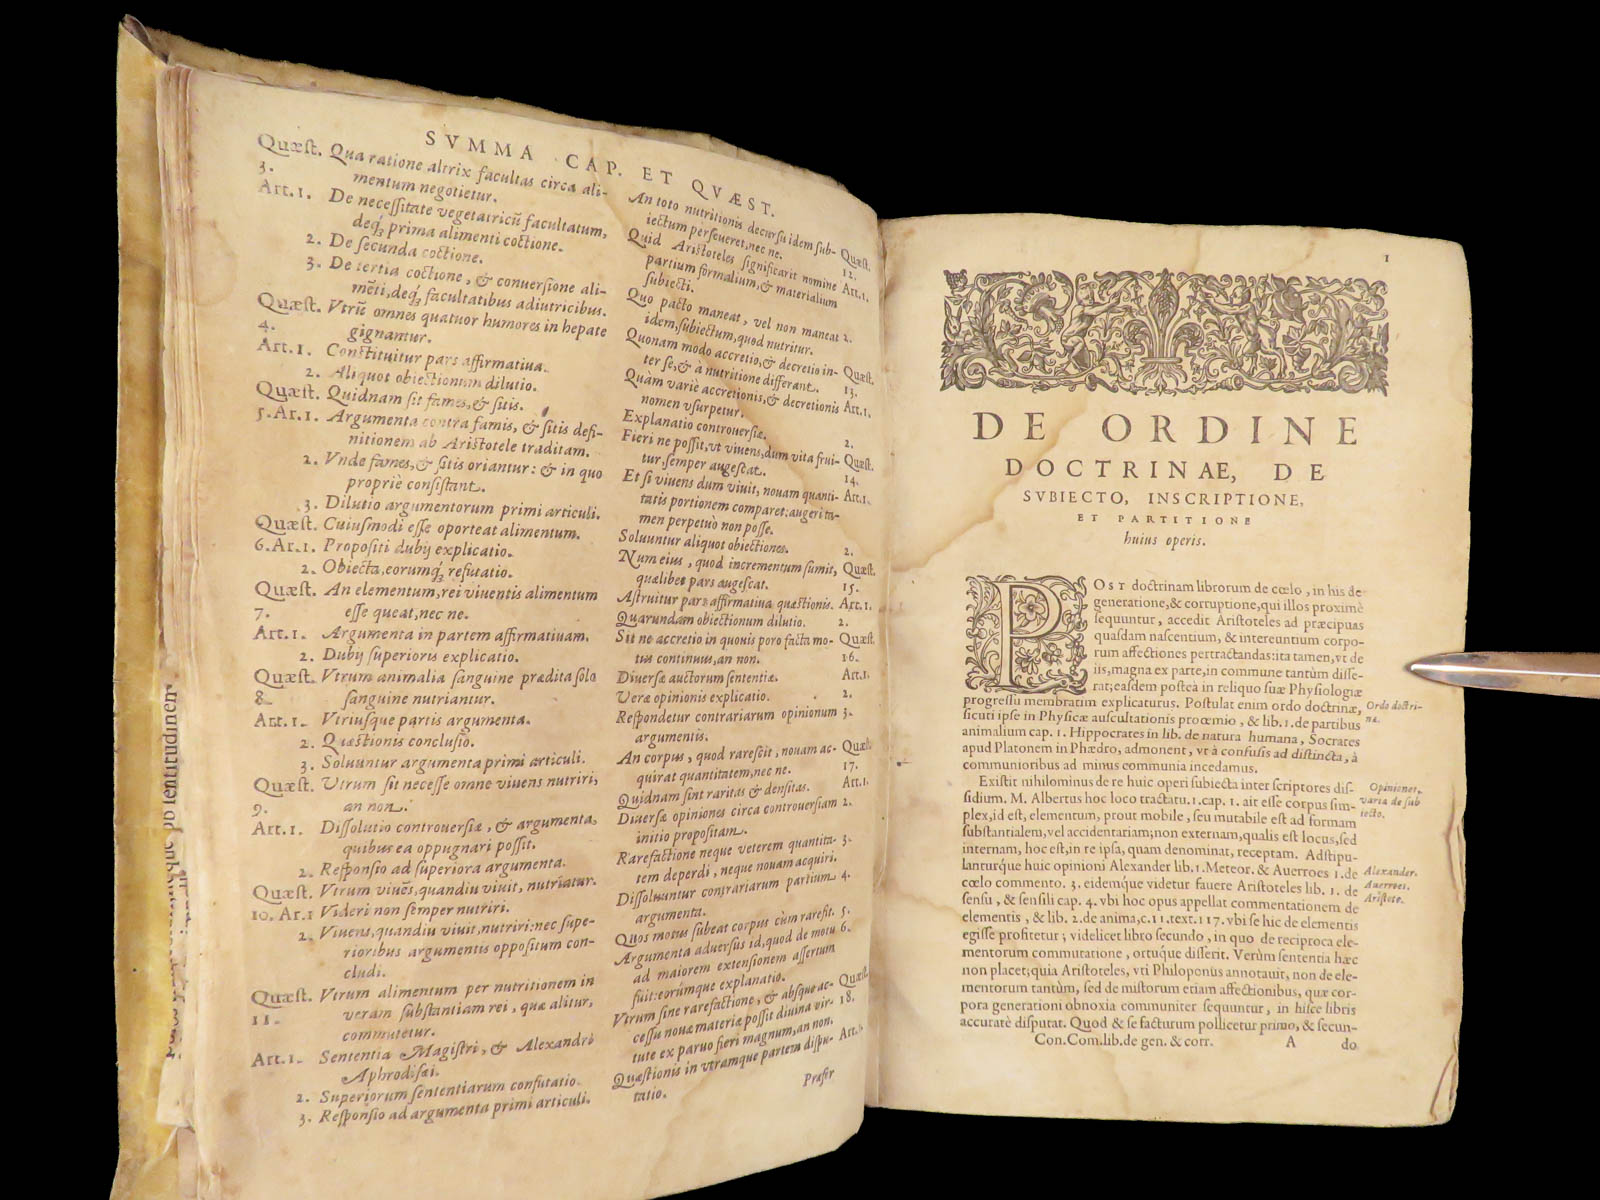 SVMMA CAP. ET QVÆST.
Quæst. Qua ratione altrix facultas circa ali-
3. mentum negotietur.
Art. 1. De necessitate vegetatricũ facultatum,
deq́; prima alimenti coctione.
2. De secunda coctione.
3. De tertia coctione, & conuersione ali-
mẽti, deq́; facultatibus adiutricibus.
Quæst. Vtrũ omnes quatuor humores in hepate
4. gignantur.
Art. 1. Constituitur pars affirmatiua.
2. Aliquot obiectionum dilutio.
Quæst. Quidnam sit fames, & sitis.
5. Ar. 1. Argumenta contra famis, & sitis defi-
nitionem ab Aristotele traditam.
2. Vnde fames, & sitis oriantur: & in quo
propriè consistant.
3. Dilutio argumentorum primi articuli.
Quæst. Cuiusmodi esse oporteat alimentum.
6. Ar. 1. Propositi dubij explicatio.
2. Obiecta, eorumq́; refutatio.
Quæst. An elementum, rei viuentis alimentum
7. esse queat, nec ne.
Art. 1. Argumenta in partem affirmatiuam.
2. Dubij superioris explicatio.
Quæst. Vtrum animalia sanguine prædita sólo
8. sanguine nutriantur.
Art. 1. Vtriusque partis argumenta.
2. Quæstionis conclusio.
3. Soluuntur argumenta primi articuli.
Quæst. Vtrum sit necesse omne viuens nutriri,
9. an non.
Art. 1. Dissolutio controuersiæ, & argumenta,
quibus ea oppugnari possit.
2. Responsio ad superiora argumenta.
Quæst. Vtrum viuẽs, quandiu viuit, nutriatur.
10. Ar. 1 Videri non semper nutriri.
2. Viuens, quandiu viuit, nutriri: nec supe-
rioribus argumentis oppositum con-
cludi.
Quæst. Vtrum alimentum per nutritionem in
11. veram substantiam rei, quæ alitur,
commutetur.
Art. 1. Sententia Magistri, & Alexandri
Aphrodisæi.
2. Superiorum sententiarum confutatio.
3. Responsio ad argumenta primi articuli.
An toto nutritionis decursu idem sub- Quæst.
iectum perseueret, nec ne. 12.
Quid Aristoteles significarit nomine Art. 1.
partium formalium, & materialium
subiecti.
Quo pacto maneat, vel non maneat 2.
idem, subiectum, quod nutritur.
Quonam modo accretio, & decretio in- Quæst.
ter se, & à nutritione differant. 13.
Quàm variè accretionis, & decretionis Art. 1.
nomen vsurpetur.
Explanatio controuersiæ. 2.
Fieri ne possit, vt viuens, dum vita frui- Quæst.
tur, semper augescat. 14.
Et si viuens dum viuit, nouam quanti- Art. 1.
tatis portionem comparet: augeri ta-
men perpetuò non posse.
Soluuntur aliquot obiectiones. 2.
Num eius, quod incrementum sumit, Quæst.
quælibet pars augescat. 15.
Astruitur pars affirmatiua quæstionis. Art. 1.
Quarundam obiectionum dilutio. 2.
Sit ne accretio in quouis poro facta mo- Quæst.
tus continuus, an non. 16.
Diuersæ auctorum sententiæ. Art. 1.
Veræ opinionis explicatio. 2.
Respondetur contrariarum opinionum 3.
argumentis.
An corpus, quod rarescit, nouam ac- Quæst.
quirat quantitatem, nec ne. 17.
Quidnam sint raritas & densitas. Art. 1.
Diuersæ opiniones circa controuersiam 2.
initio propositam.
Rarefactione neque veterem quantita- 3.
tem deperdi, neque nouam acquiri.
Dissoluuntur contrariarum partium 4.
argumenta.
Quos motus subeat corpus cùm rarefit. 5.
Argumenta aduersus id, quod de motu 6.
ad maiorem extensionem assertum
fuit: eorúmque explanatio.
Vtrum sine rarefactione, & absque ac- Quæst.
cessu nouæ materiæ possit diuina vir- 18.
tute ex paruo fieri magnum, an non.
Quæstionis in vtramque partem dispu- Art. 1.
tatio.
Præter
1
DE ORDINE
DOCTRINAE, DE
SVBIECTO, INSCRIPTIONE,
ET PARTITIONE
huius operis.
POST doctrinam librorum de cœlo, in his de
generatione, & corruptione, qui illos proximè
sequuntur, accedit Aristoteles ad præcipuas
quasdam nascentium, & intereuntium corpo-
rum affectiones pertractandas: ita tamen, vt de
iis, magna ex parte, in commune tantùm disse-
rat; easdem posteà in reliquo suæ Physiologiæ
progressu membratim explicaturus. Postulat enim ordo doctrinæ,
sicuti ipse in Physicæ auscultationis proœmio, & lib. 1. de partibus
animalium cap. 1. Hippocrates in lib. de natura humana, Socrates
apud Platonem in Phædro, admonent, vt à confusis ad distincta, à
communioribus ad minus communia incedamus.
Ordo doctri-
næ.
Existit nihilominus de re huic operi subiecta inter scriptores dis-
sidium. M. Albertus hoc loco tractatu. 1. cap. 1. ait esse corpus sim-
plex, id est, elementum, prout mobile, seu mutabile est ad formam
substantialem, vel accidentariam; non externam, qualis est locus, sed
internam, hoc est, in re ipsa, quam denominat, receptam. Adstipu-
lantúrque huic opinioni Alexander lib. 1. Meteor. & Auerroes 1. de
cœlo commento. 3. eidemque videtur fauere Aristoteles lib. 1. de
sensu, & sensili cap. 4. vbi hoc opus appellat commentationem de
elementis, & lib. 2. de anima, c. 11. text. 117. vbi se hic de elementis
egisse profitetur; videlicet libro secundo, in quo de reciproca ele-
mentorum commutatione, ortúque disserit. Verùm sententia hæc
non placet; quia Aristoteles, vti Philoponus annotauit, non de ele-
mentorum tantùm, sed de mistorum etiam affectionibus, quæ cor-
pora generationi obnoxia communiter sequuntur, in hisce libris
accuratè disputat. Quod & se facturum pollicetur primo, & secun-
Opiniones
varia de sub
iecto.
Alexander.
Auerroes.
Aristote.
Con. Com. lib. de gen. & corr. A do